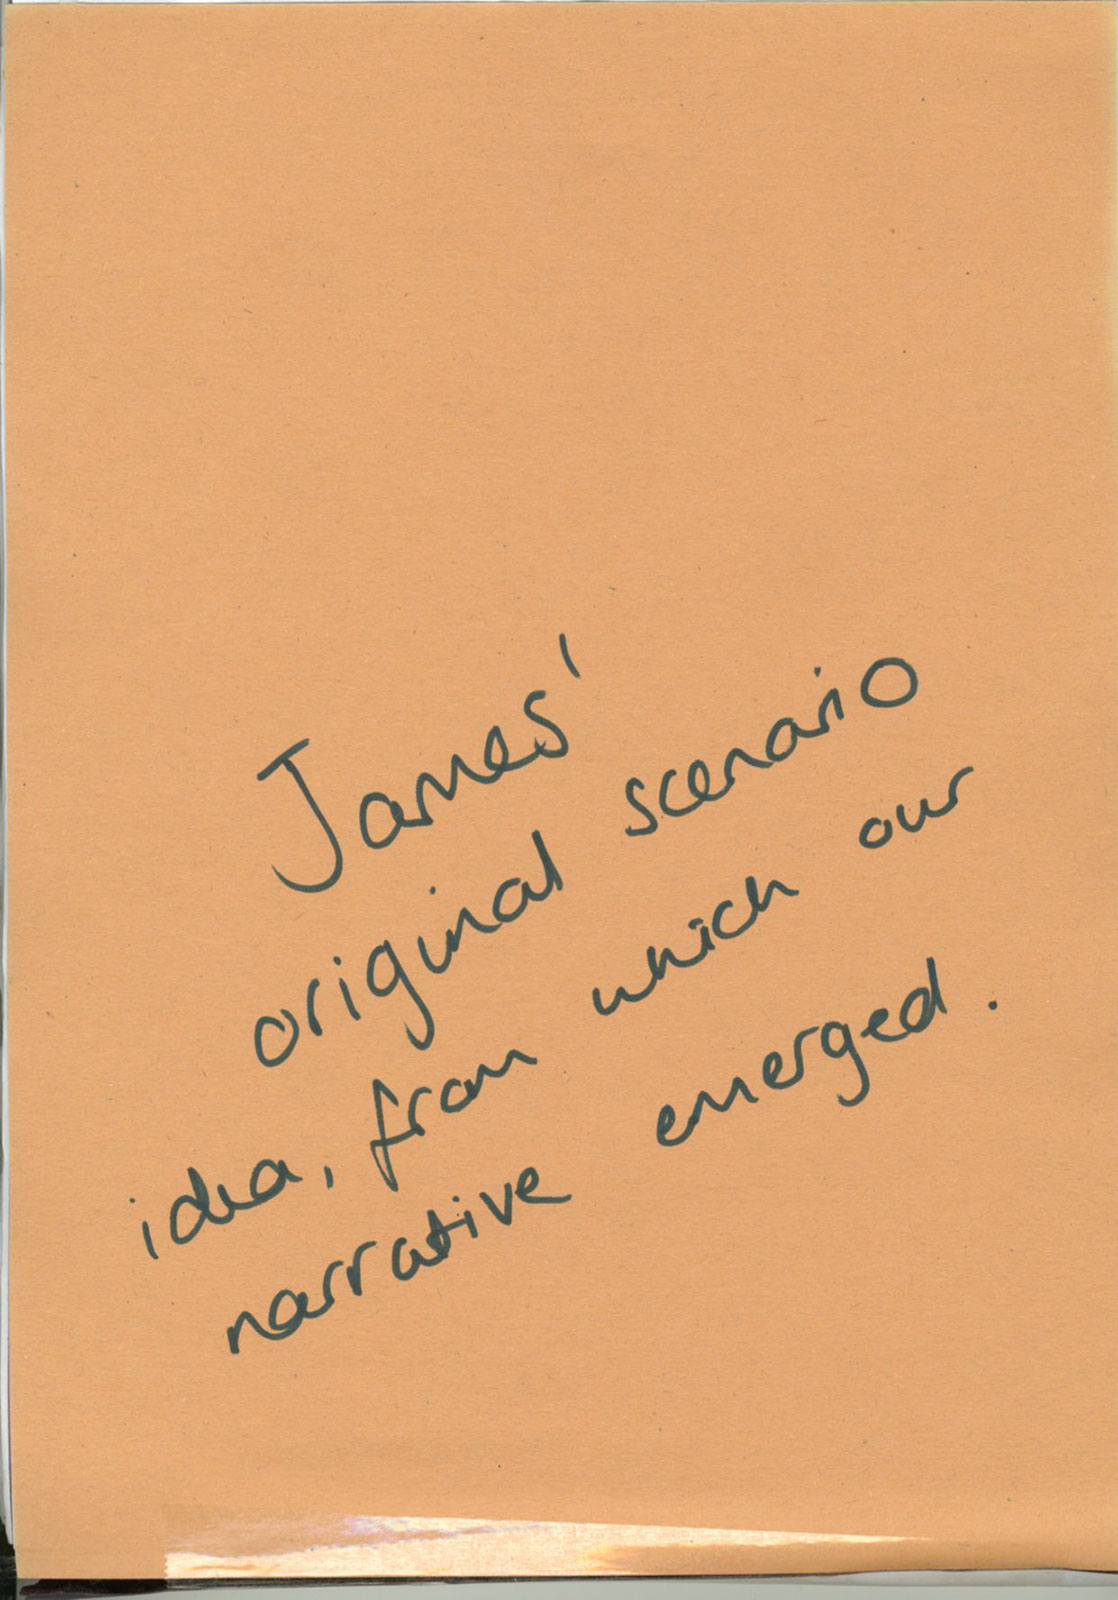 James'
original scenario
idea, from which our
narrative emerged.